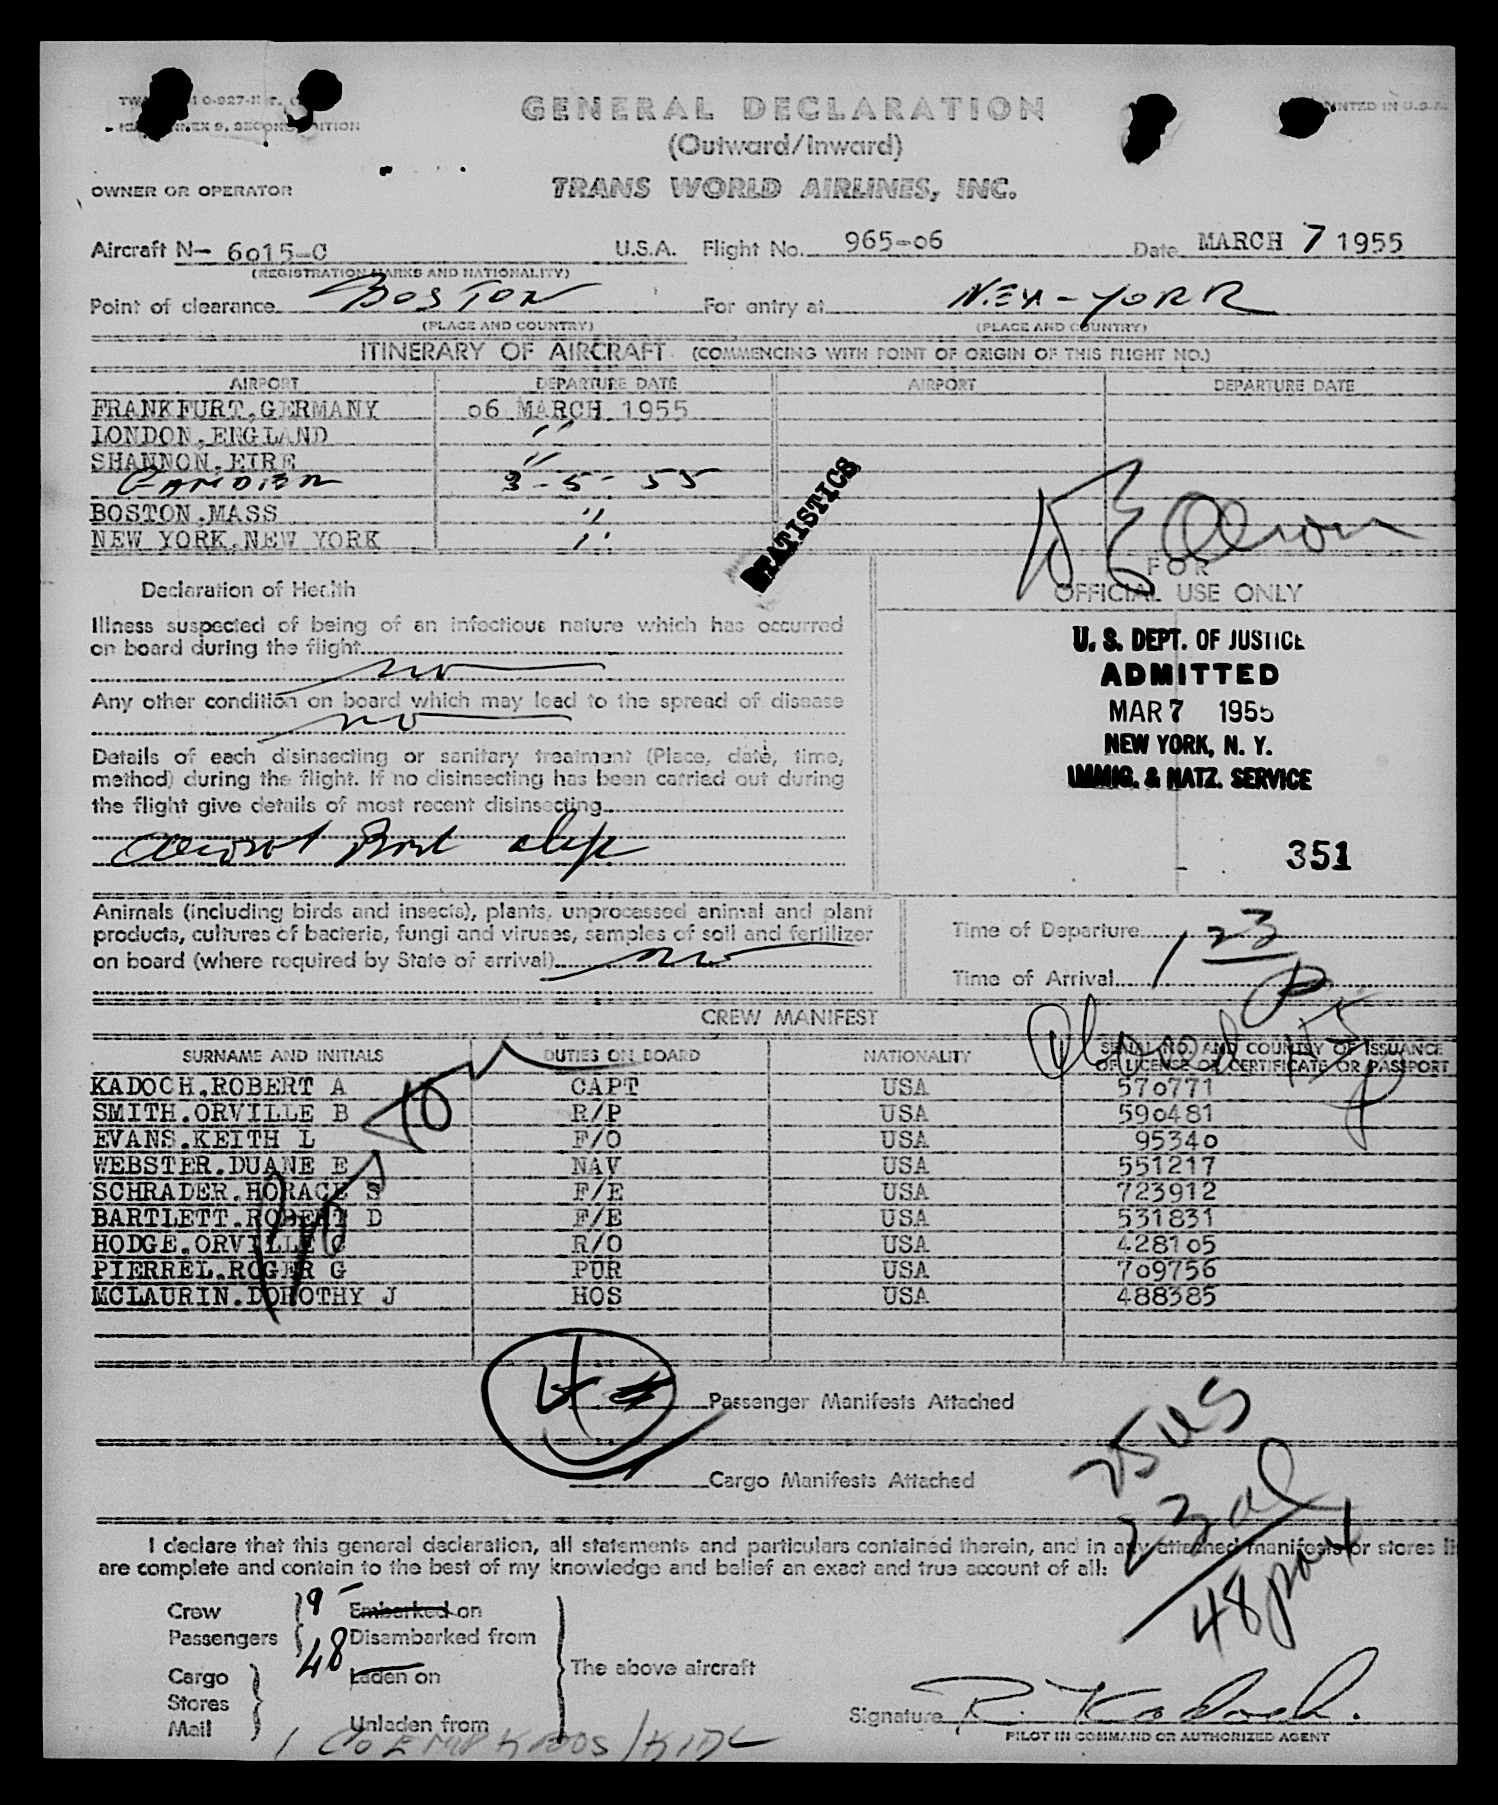 GENERAL DECLARATION
(Outward/Inward)
OWNER OR OPERATOR TRANS WORLD AIRLINES, INC.
Aircraft N- 6015-C U.S.A. Flight No. 965-06 Date MARCH 7 1955
(REGISTRATION MARKS AND NATIONALITY)
Point of clearance BOSTON For entry at NEW-YORK
(PLACE AND COUNTRY) (PLACE AND COUNTRY)
ITINERARY OF AIRCRAFT (COMMENCING WITH POINT OF ORIGIN OF THIS FLIGHT NO.)
AIRPORT DEPARTURE DATE AIRPORT DEPARTURE DATE
FRANKFURT,GERMANY 06 MARCH 1955
LONDON,ENGLAND "
SHANNON,EIRE "
GANDER 3-5-55
BOSTON,MASS "
NEW YORK,NEW YORK "
STATISTICS
FOR
OFFICIAL USE ONLY
Declaration of Health
Illness suspected of being of an infectious nature which has occurred
on board during the flight
no
Any other condition on board which may lead to the spread of disease
no
Details of each disinsecting or sanitary treatment (Place, date, time,
method) during the flight. If no disinsecting has been carried out during
the flight give details of most recent disinsecting
U. S. DEPT. OF JUSTICE
ADMITTED
MAR 7 1955
NEW YORK, N. Y.
IMMIG. & NATZ. SERVICE
351
Animals (including birds and insects), plants, unprocessed animal and plant
products, cultures of bacteria, fungi and viruses, samples of soil and fertilizer
on board (where required by State of arrival) no
Time of Departure
Time of Arrival 1 23 P
CREW MANIFEST
SURNAME AND INITIALS DUTIES ON BOARD NATIONALITY SERIAL NO. AND COUNTRY OF ISSUANCE
OF LICENCE OR CERTIFICATE OR PASSPORT
KADOCH,ROBERT A CAPT USA 570771
SMITH.ORVILLE B R/P USA 590481
EVANS.KEITH L F/O USA 95340
WEBSTER.DUANE E NAV USA 551217
SCHRADER.HORACE S F/E USA 723912
BARTLETT.ROBERT D F/E USA 531831
HODGE.ORVILLE C R/O USA 428105
PIERREL.ROGER G PUR USA 709756
MCLAURIN.DOROTHY J HOS USA 488385
4 Passenger Manifests Attached
Cargo Manifests Attached
25 US
23 al
48 pax
I declare that this general declaration, all statements and particulars contained therein, and in any attached manifests or stores li
are complete and contain to the best of my knowledge and belief an exact and true account of all:
Crew 9 Embarked on
Passengers 48 Disembarked from
Cargo Laden on
Stores
Mail Unladen from
The above aircraft
Signature R. Kadoch.
PILOT IN COMMAND OR AUTHORIZED AGENT